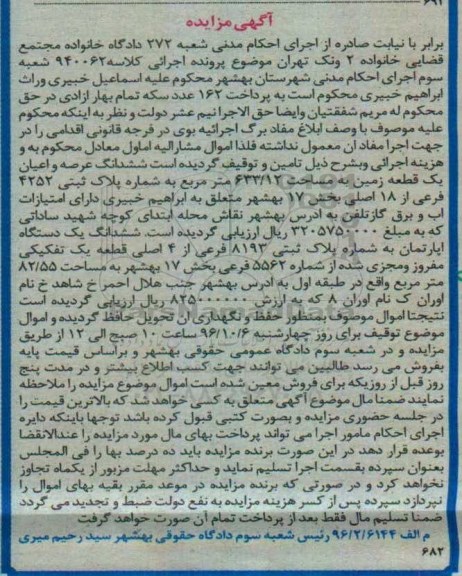 ۶۹۱
آگهی مزایده
برابر با نیابت صادره از اجرای احکام مدنی شعبه ۲۷۲ دادگاه خانواده مجتمع
قضایی خانواده ۲ ونک تهران موضوع پرونده اجرائی کلاسه۹۴۰۰۶۲ شعبه
سوم اجرای احکام مدنی شهرستان بهشهر محکوم علیه اسماعیل خبیری وراث
ابراهیم خبیری محکوم است به پرداخت ۱۶۲ عدد سکه تمام بهار ازادی در حق
محکوم له مریم شفقتیان وایضا حق الاجرا نیم عشر دولت و نظر به اینکه محکوم
علیه موصوف با وصف ابلاغ مفاد برگ اجرائیه بوی در فرجه قانونی اقدامی را در
جهت اجرا مفاد ان معمول نداشته فلذا اموال مشارالیه اماول معادل محکوم به و
هزینه اجرائی وبشرح ذیل تامین و توقیف گردیده است ششدانگ عرصه و اعیان
یک قطعه زمین به مساحت ۶۳۳/۱۲ متر مربع به شماره پلاک ثبتی ۴۲۵۲
فرعی از ۱۸ اصلی بخش ۱۷ بهشهر متعلق به ابراهیم خبیری دارای امتیازات
اب و برق گازتلفن به ادرس بهشهر نقاش محله ابتدای کوچه شهید ساداتی
که به مبلغ ۳۲۰۵۷۵۰۰۰۰ ریال ارزیابی گردیده است. ششدانگ یک دستگاه
اپارتمان به شماره پلاک ثبتی ۸۱۹۳ فرعی از ۴ اصلی قطعه یک تفکیکی
مفروز ومجزی شده از شماره ۵۵۶۲ فرعی بخش ۱۷ بهشهر به مساحت ۸۲/۵۵
متر مربع واقع در طبقه اول به ادرس بهشهر جنب هلال احمر خ شاهد خ نام
اوران ک نام اوران ۸ که به ارزش ۸۲۵۰۰۰۰۰۰ ریال ارزیابی گردیده است
نتیجتا اموال موصوف به منظور حفظ و نگهداری ان تحویل حافظ گردیده و اموال
موضوع توقیف برای روز چهارشنبه ۹۶/۱۰/۶ ساعت ۱۰ صبح الی ۱۲ از طریق
مزایده و در شعبه سوم دادگاه عمومی حقوقی بهشهر و براساس قیمت پایه
بفروش می رسد طالبیین می توانند جهت کسب اطلاع بیشتر و در مدت پنج
روز قبل از روزیکه برای فروش معین شده است اموال موضوع مزایده را ملاحظه
نمایند ضمنا مال موضوع آگهی متعلق به کسی خواهد شد که بالاترین قیمت را
در جلسه حضوری مزایده و بصورت کتبی قبول کرده باشد توجها باینکه دایره
اجرای احکام مامور اجرا می تواند پرداخت بهای مال مورد مزایده را عندالانقضا
بوعده قرار دهد در این صورت برنده مزایده باید ده درصد بها را فی المجلس
بعنوان سپرده بقسمت اجرا تسلیم نماید و حداکثر مهلت مزبور از یکماه تجاوز
نخواهد کرد و در صورتی که برنده مزایده در موعد مقرر بقیه بهای اموال را
نپردازد سپرده پس از کسر هزینه مزایده به نفع دولت ضبط و تجدید می گردد
ضمنا تسلیم مال فقط بعد از پرداخت تمام آن صورت خواهد گرفت
م الف ۹۶/۲/۶۱۴۴ رئیس شعبه سوم دادگاه حقوقی بهشهر سید رحیم میری
۶۸۲